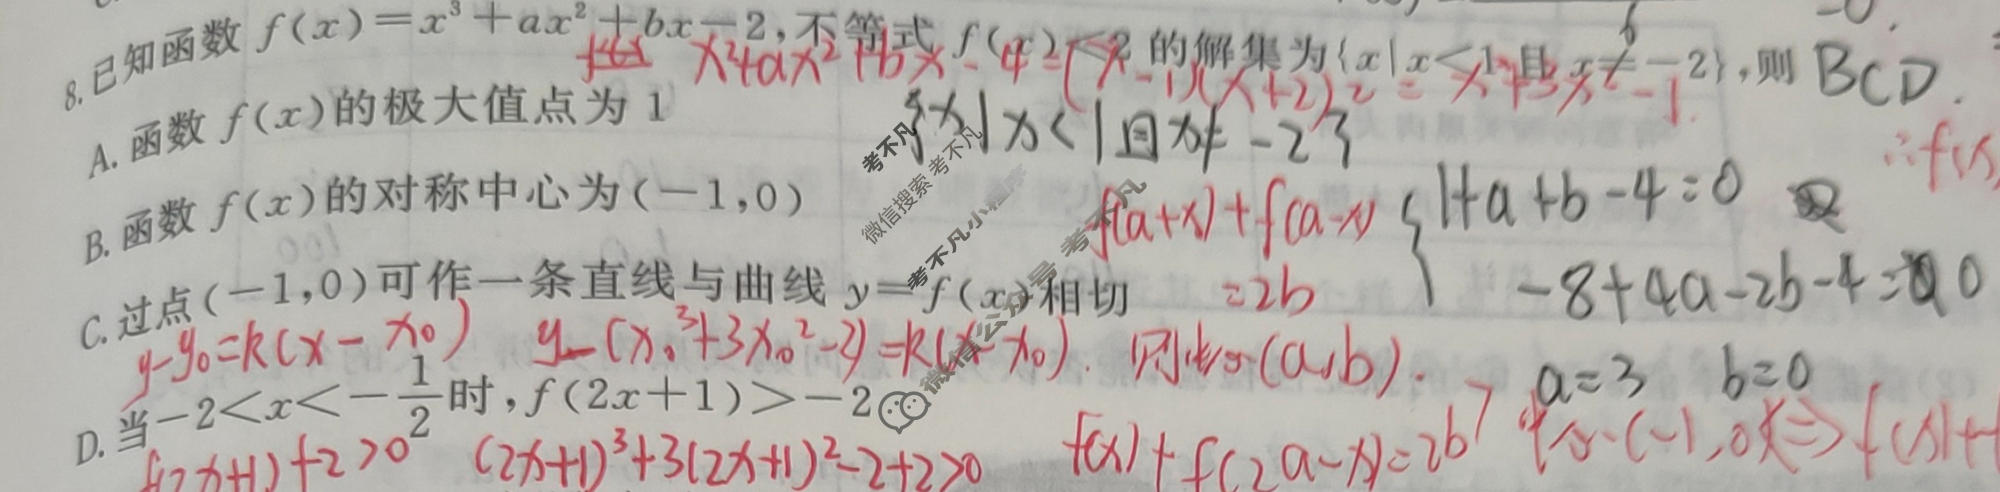 8.已知函数 f(x)=x³+ax²+bx-2,不等式 f(x)<2 的解集为{x|x<1且x≠-2},则 BCD.
x³+ax²+bx-4=(x-1)(x+2)²=x³+3x²-
{x|x<1且x≠-2}
A.函数 f(x)的极大值点为 1
∴f(x)
B.函数 f(x)的对称中心为(-1,0)
f(a+x)+f(a-x)
=2b
1+a+b-4=0
-8+4a-2b-4=0
a=3 b=0
C.过点(-1,0)可作一条直线与曲线 y=f(x)相切
y-y₀=k(x-x₀) y-(x₀³+3x₀²-2)=k(x-x₀). (a,b).
D.当-2<x<-1/2时,f(2x+1)>-2
f(2x+1)+2>0 (2x+1)³+3(2x+1)²-2+2>0
f(x)+f(2a-x)=2b
(-1,0)⇒f(x)+
考不凡
微信搜索考不凡
考不凡小程序
微信公众号 考不凡